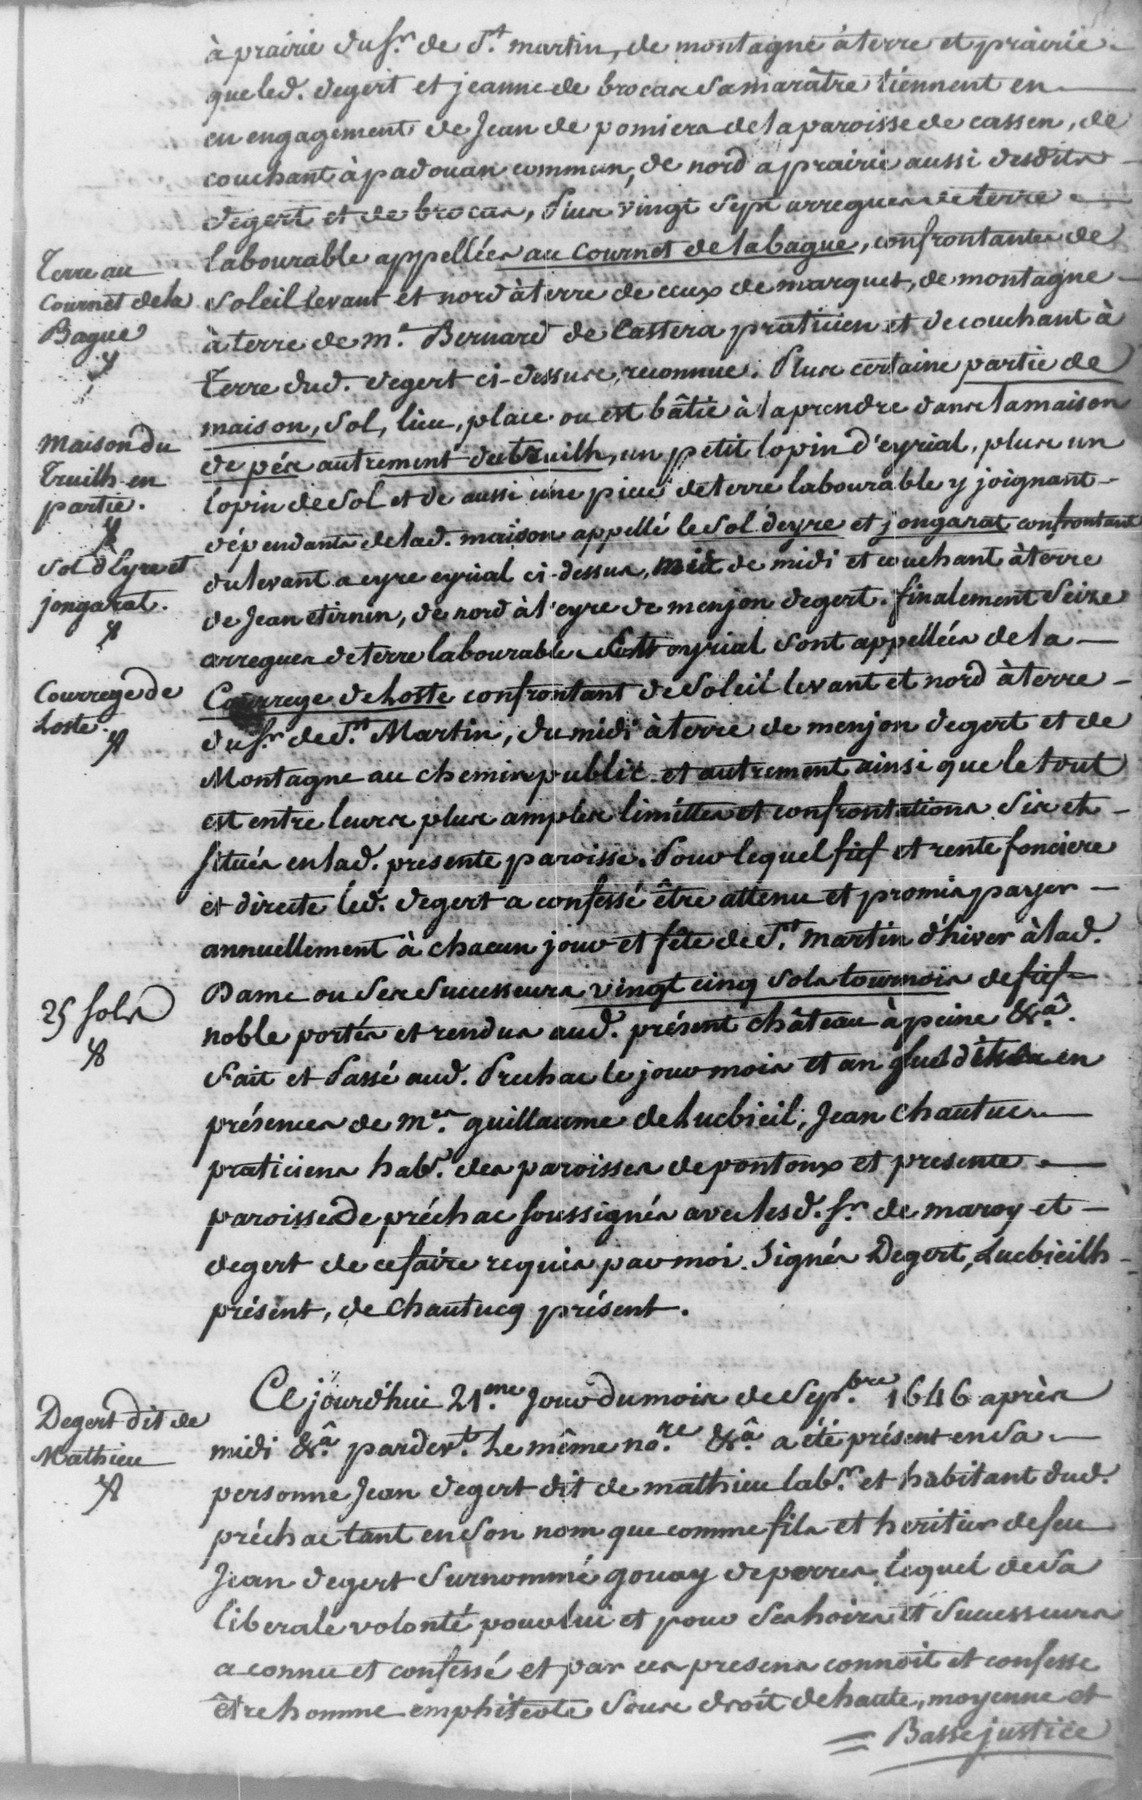 à prairie du sr. de st. martin, de montagne à terre et prairie
que led. degert et jeanne de brocas sa marâtre tiennent en
en engagement de Jean de pomiers de la paroisse de cassen, de
couchant à padouan commun, de nord a prairie aussi desdits
degert et de brocas, Plus vingt sept arregues de terre
Terre au
Cournet de la
Bague
labourable appellées au Cournet de labague, confrontantes de
soleil levant et nord à terre de ceux de marquet, de montagne
à terre de me. Bernard de Castera praticien et de couchant à
terre dud. degert ci-dessus, reconnue. Plus certaine partie de
Maison du
Truilh en
partie.
maison, sol, lieu, place ou est bâtie à la prendre dans la maison
de pés autrement du truilh, un petit lopin d'eyrial, plus un
lopin de sol et de aussi une piece de terre labourable y joignant
Sol d'Eyre et
jongarat.
dépendants de lad. maison appellé le sol deyre et jongarat confrontant
du levant a eyre eyrial ci-dessus, de midi et couchant à terre
de Jean etirnin, de nord à l'eyre de menjon degert. finalement seize
arregues de terre labourable eyrial sont appellées de la
Courrege de
Loste.
Courrege de Loste confrontant de soleil levant et nord à terre
du sr. de st. Martin, du midi à terre de menjon degert et de
Montagne au chemin public et autrement ainsi que le tout
est entre leurs plus amples limittes et confrontations sis et
situés en lad. presente paroisse. Pour lequel fief et rente fonciere
et directe led. degert a confessé être attenu et promis payer
annuellement à chacun jour et fête de St. Martin d'hiver à lad.
25 sols
Dame ou ses successeurs vingt cinq sols tournois de fief
noble portés et rendus aud. présent château à peine &a.
Fait et Passé aud. Prechac le jour mois et an que dit en
présences de mes. guillaume de Lucbieil, Jean Chautuc
praticiens habs. des paroisses de pontonx et presente
paroisse de préchac soussignés avec lesd. sr. de maroy et
degert de ce faire requis par moi. Signés Degert, Lucbieilh
présent, de Chautucq présent.
Degert dit de
Mathieu
Ce jourd'hui 21.me jour du mois de Sepbre. 1646 après
midi &a. pardevt. Le même nore. &a a été présent en sa
personne Jean degert dit de mathieu labr. et habitant dud.
préchac tant en son nom que comme fils et heritier de feu
Jean degert surnommé gouay de perres, lequel de sa
liberale volonté pour lui et pour ses hoirs et successeurs
a connu et confessé et par ces presens connoit et confesse
être homme emphiteote sous droit de haute, moyenne et
= Basse justice